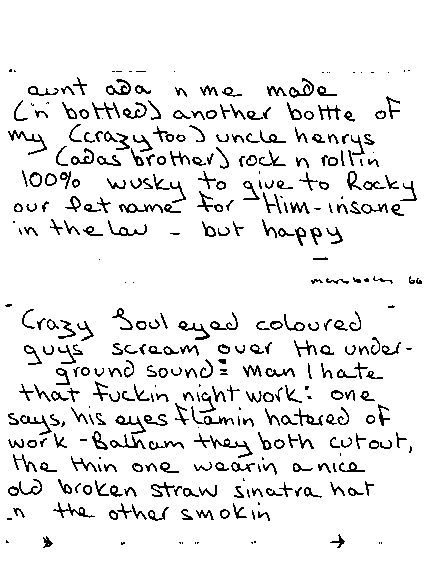 aunt ada n me made
('n' bottled) another bottle of
my (crazy too) uncle henrys
(adas brother) rock n rollin
100% wusky to give to Rocky
our Pet name for Him - insane
in the law - but happy
66
Crazy Soul eyed coloured
guys scream over the under-
ground sound: Man I hate
that fuckin night work: one
says, his eyes flamin hatered of
work - Balham they both cut out,
the thin one wearin a nice
old broken straw sinatra hat
n the other smokin